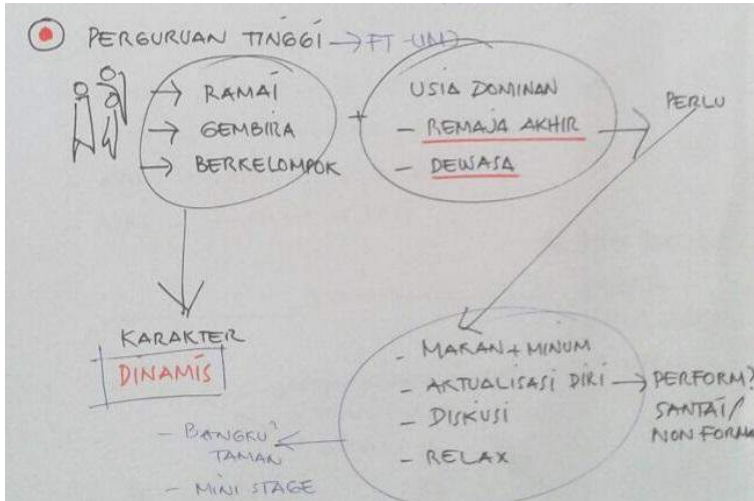 PERGURUAN TINGGI → FT-UM
→ RAMAI
→ GEMBIRA
→ BERKELOMPOK
+
USIA DOMINAN
- REMAJA AKHIR
- DEWASA
PERLU
KARAKTER
DINAMIS
- MAKAN + MINUM
- AKTUALISASI DIRI → PERFORM?
SANTAI/
NON FORMA
- DISKUSI
- RELAX
- BANGKU²
TAMAN
- MINI STAGE